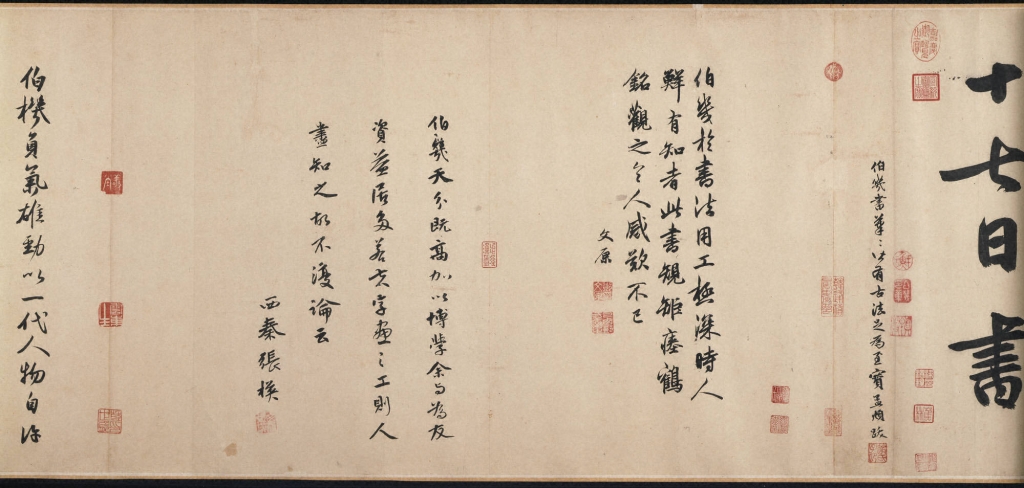 十七日書
伯幾書筆筆有古法足為至寶孟頫跋
伯幾於書法用工極深時人
鮮有知者此書規矩瘞鶴
銘觀之令人感歎不已
文原
伯幾天分既高加以博學余與為友
資益居多若其字畫之工則人
盡知之故不復論云
西秦張楧
伯機負氣雄勁以一代人物自許